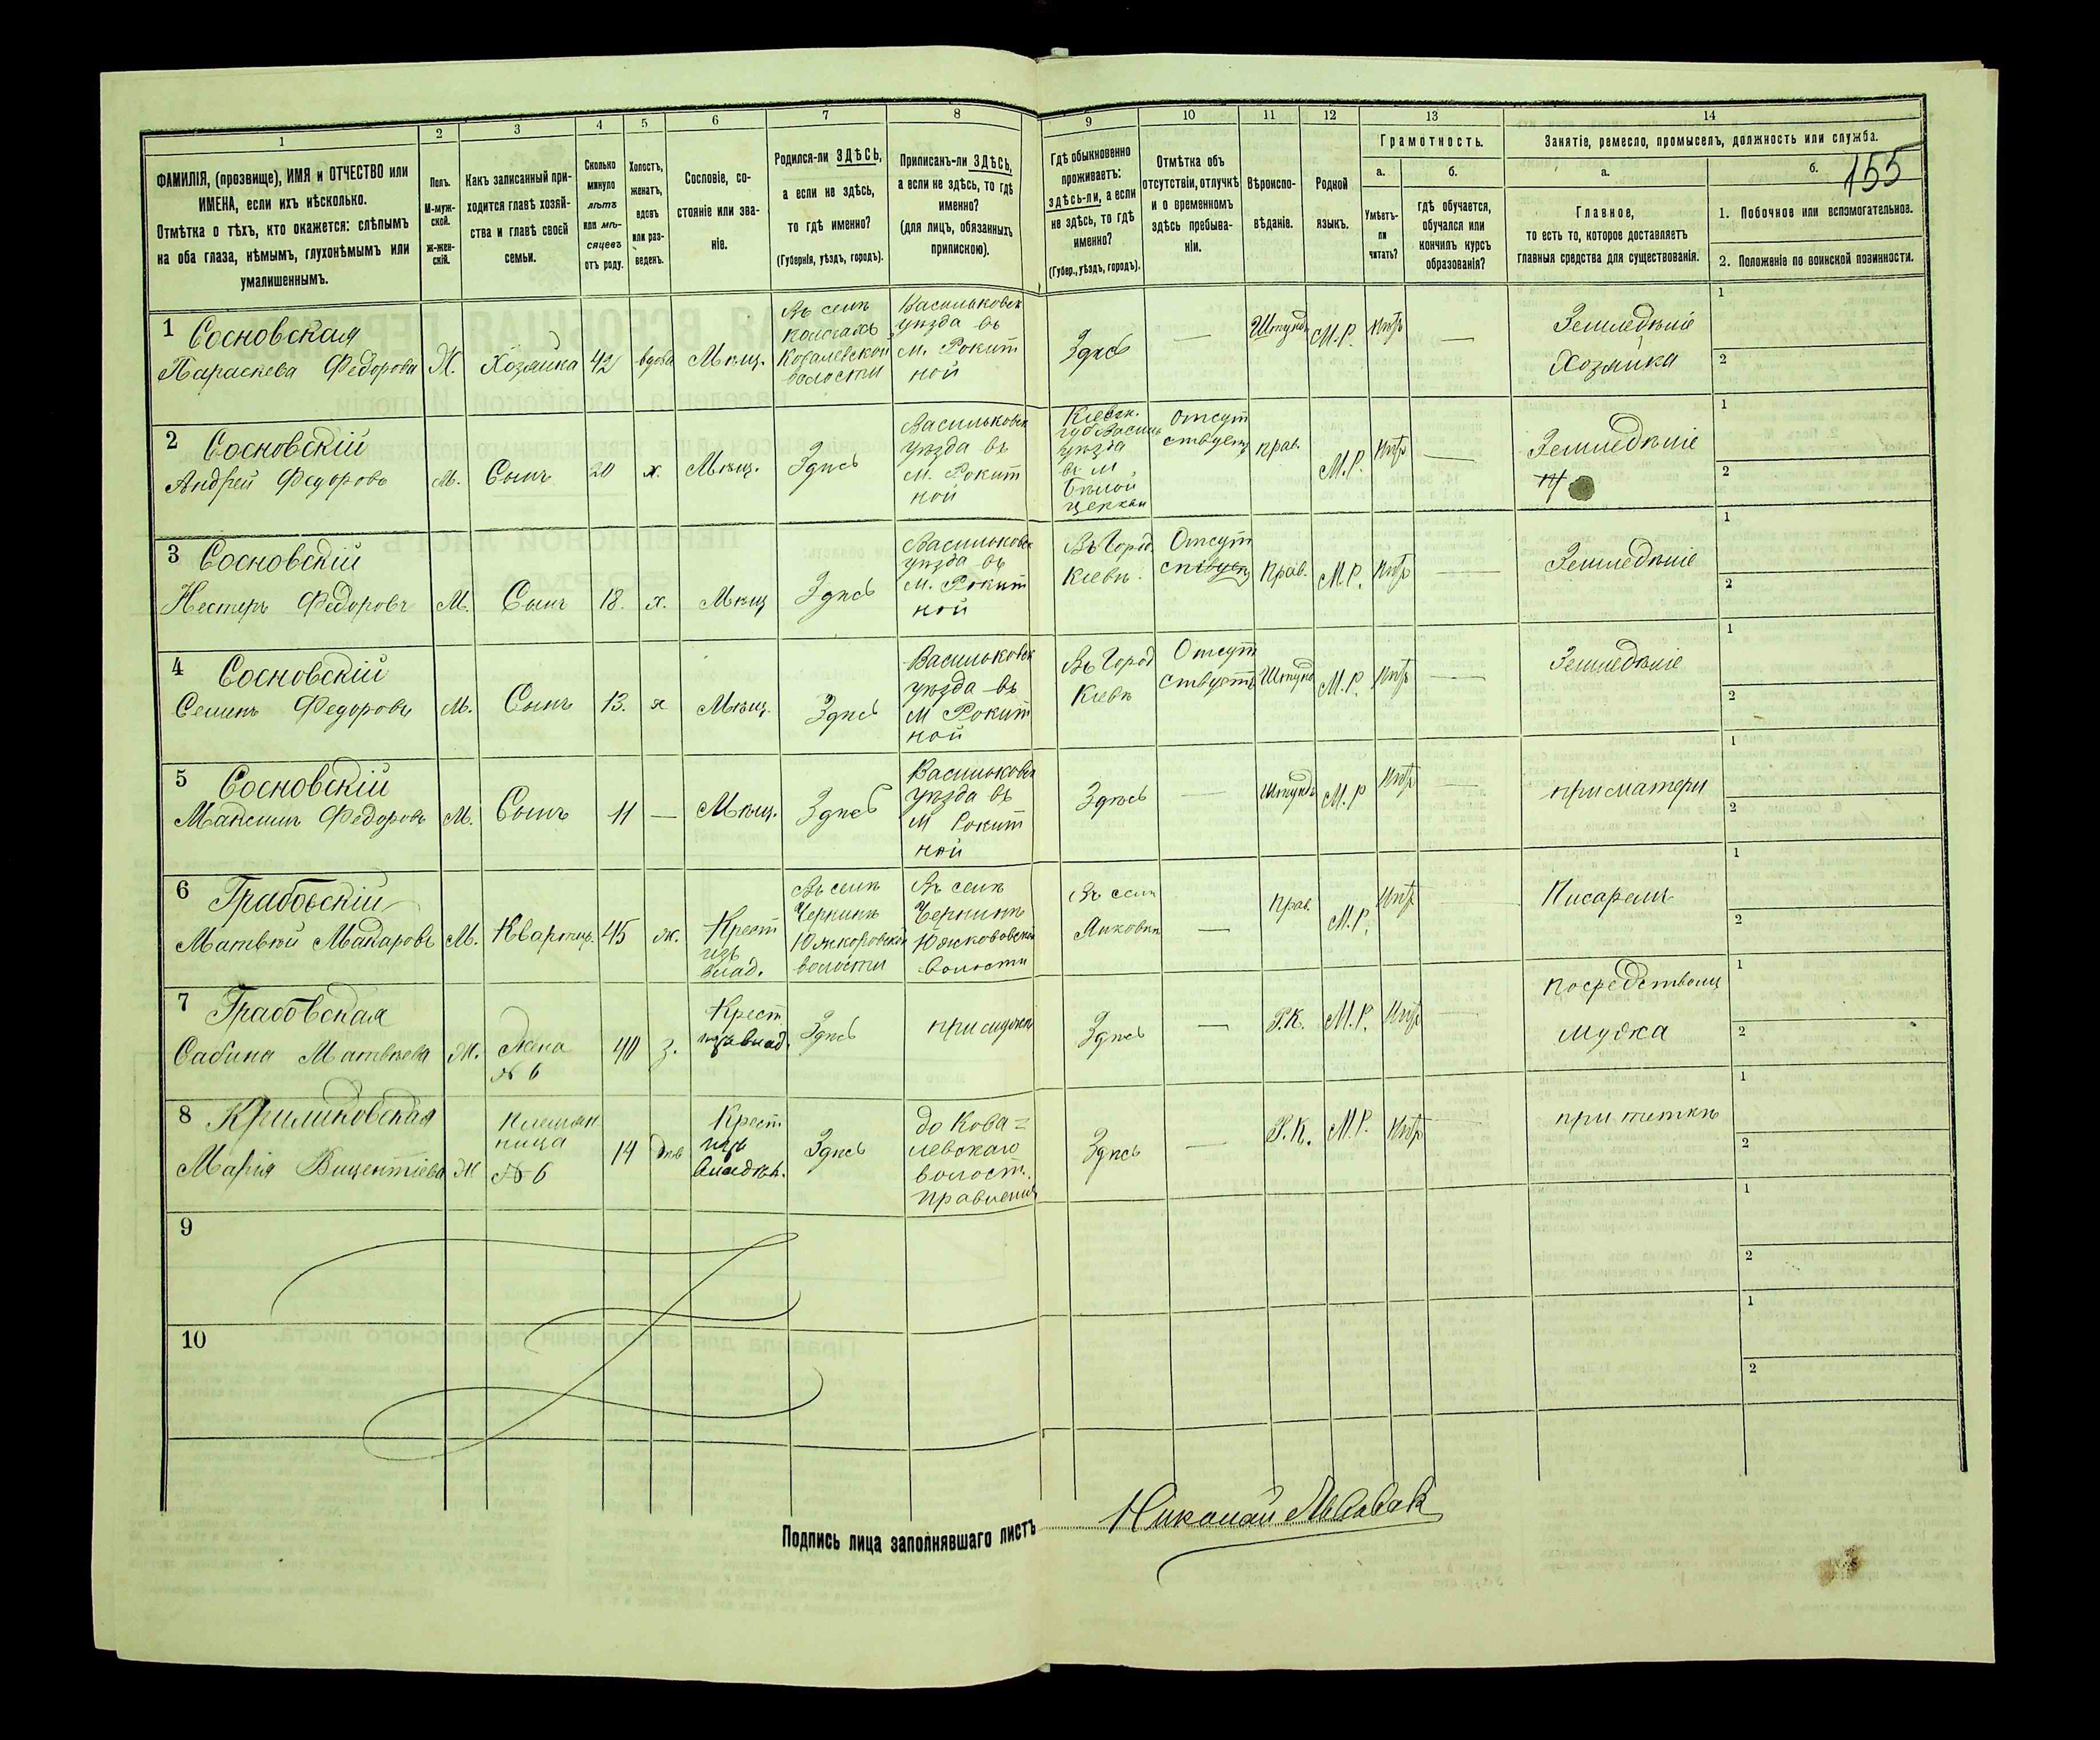 1 2 3 4 5 6 7 8 9 10 11 12 13 14
155
ФАМИЛІЯ, (прозвище), ИМЯ и ОТЧЕСТВО или
ИМЕНА, если ихъ нѣсколько.
Отмѣтка о тѣхъ, кто окажется: слѣпымъ
на оба глаза, нѣмымъ, глухонѣмымъ или
умалишеннымъ.
Полъ.
М-муж-
ской.
Ж-жен-
скій.
Какъ записанный при-
ходится главѣ хозяй-
ства и главѣ своей
семьи.
Сколько
минуло
лѣтъ
или мѣ-
сяцевъ
отъ роду.
Холостъ,
женатъ,
вдовъ
или раз-
веденъ.
Сословіе, со-
стояніе или зва-
ніе.
Родился-ли ЗДѢСЬ,
а если не здѣсь,
то гдѣ именно?
(Губернія, уѣздъ, городъ).
Приписанъ-ли ЗДѢСЬ,
а если не здѣсь, то гдѣ
именно?
(для лицъ, обязанныхъ
припискою).
Гдѣ обыкновенно
проживаетъ:
здѣсь-ли, а если
не здѣсь, то гдѣ
именно?
(Губер., уѣздъ, городъ).
Отмѣтка объ
отсутствіи, отлучкѣ
и о временномъ
здѣсь пребыва-
ніи.
Вѣроиспо-
вѣданіе.
Родной
языкъ.
Грамотность.
а.
Умѣетъ-
ли
читать?
б.
гдѣ обучается,
обучался или
кончилъ курсъ
образованія?
Занятіе, ремесло, промыселъ, должность или служба.
а.
Главное,
то есть то, которое доставляетъ
главныя средства для существованія.
б.
1. Побочное или вспомогательное.
2. Положеніе по воинской повинности.
1 Сосновская
Параскева Федорова
Ж.
Хозяйка
42
вдова
Мѣщ.
Въ селѣ
Ковалевской
волости
Васильковск
уѣзда въ
м. Рокит
ной
Здѣсь
—
Штунд
М.Р.
нѣтъ
—
Земледѣліе
Хозяйка
1
2
2 Сосновскій
Андрей Федоровъ
М.
Сынъ
20
х.
Мѣщ.
Здѣсь
Васильковск
уѣзда въ
м. Рокит
ной
Кіевск.
губ Васил
уѣзда
въ м.
Бѣлой
церкви
Отсут
ствуетъ
прав.
М.Р.
нѣтъ
—
Земледѣліе
1
2
3 Сосновскій
Нестеръ Федоровъ
М.
Сынъ
18.
х.
Мѣщ
Здѣсь
Васильковск
уѣзда въ
м. Рокит
ной
Въ Город
Кіевѣ.
Отсут
ствуетъ
Прав.
М.Р.
нѣтъ
—
Земледѣліе
1
2
4 Сосновскій
Семенъ Федоровъ
М.
Сынъ
13.
х
Мѣщ.
Здѣсь
Васильковск
уѣзда въ
м Рокит
ной
Въ Город
Кіевѣ
Отсут
ствуетъ
Штунд
М.Р.
нѣтъ
—
Земледѣліе
1
2
5 Сосновскій
Максимъ Федоровъ
М.
Сынъ
11
—
Мѣщ.
Здѣсь
Васильковск
уѣзда въ
м Рокит
ной
Здѣсь
—
Штундъ
М.Р
нѣтъ
—
при матери
1
2
6 Грабовскій
Матвѣй Макаровъ
М.
Квартир.
45
ж.
Крест
изъ
влад.
Въ селѣ
Чернинѣ
волости
Въ селѣ
Чернинѣ
волости
Въ сел
—
прав.
М.Р.
нѣтъ
Писаремъ
1
2
7 Грабовская
Сабина Матвѣева
Ж.
Жена
№ 6
40
з.
Крест
изъ влад.
Здѣсь
при мужѣ
Здѣсь
—
Р.К.
М.Р.
нѣтъ
—
посредствомъ
мужа
1
2
8 Климковская
Марія Вицентіева
Ж
племян
ница
№ 6
14
дѣв
Крест
изъ
владѣл.
Здѣсь
до Кова=
левскаго
волост.
правленія
Здѣсь
—
Р.К.
М.Р.
нѣтъ
—
при теткѣ
1
2
9
1
2
10
1
2
Подпись лица заполнявшаго листъ
Николай